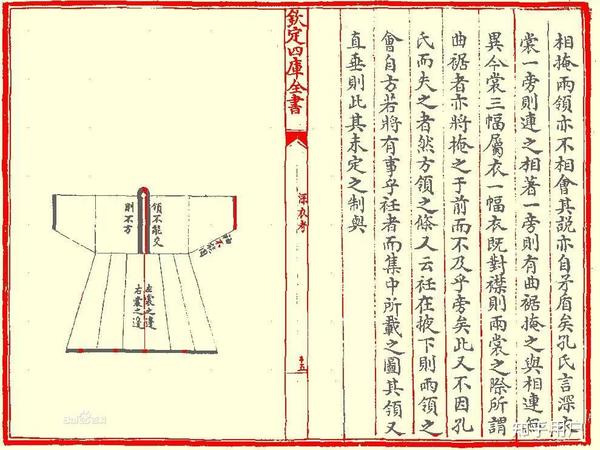 相掩兩領亦不相會其說亦自矛盾矣孔氏言深衣
裳一旁則連之相著一旁則有曲裾掩之與相連無
異今裳三幅屬衣一幅衣既對襟則兩裳之際所謂
曲裾者亦將掩之于前而不及乎旁矣此又不因孔
氏而失之者然方領之條又云衽在掖下則兩領之
會自方若將有事乎衽者而集中所載之圖其領又
直垂則此其未定之制與
欽定四庫全書
深衣考
十五
領不能交
則不方
左裳之邊
右裳之邊
Bai百科
知乎用户